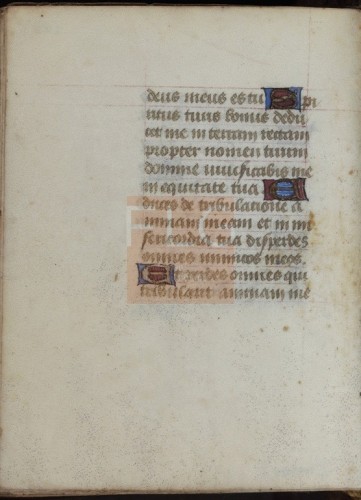 deus meus es tu Spi
ritus tuus bonus dedu
cet me in terram rectam
propter nomen tuum
domine vivificabis me
in equitate tua E
duces de tribulatione a
nimam meam et in mi
sericordia tua disperdes
omnes inimicos meos.
Et perdes omnes qui
tribulant animam me